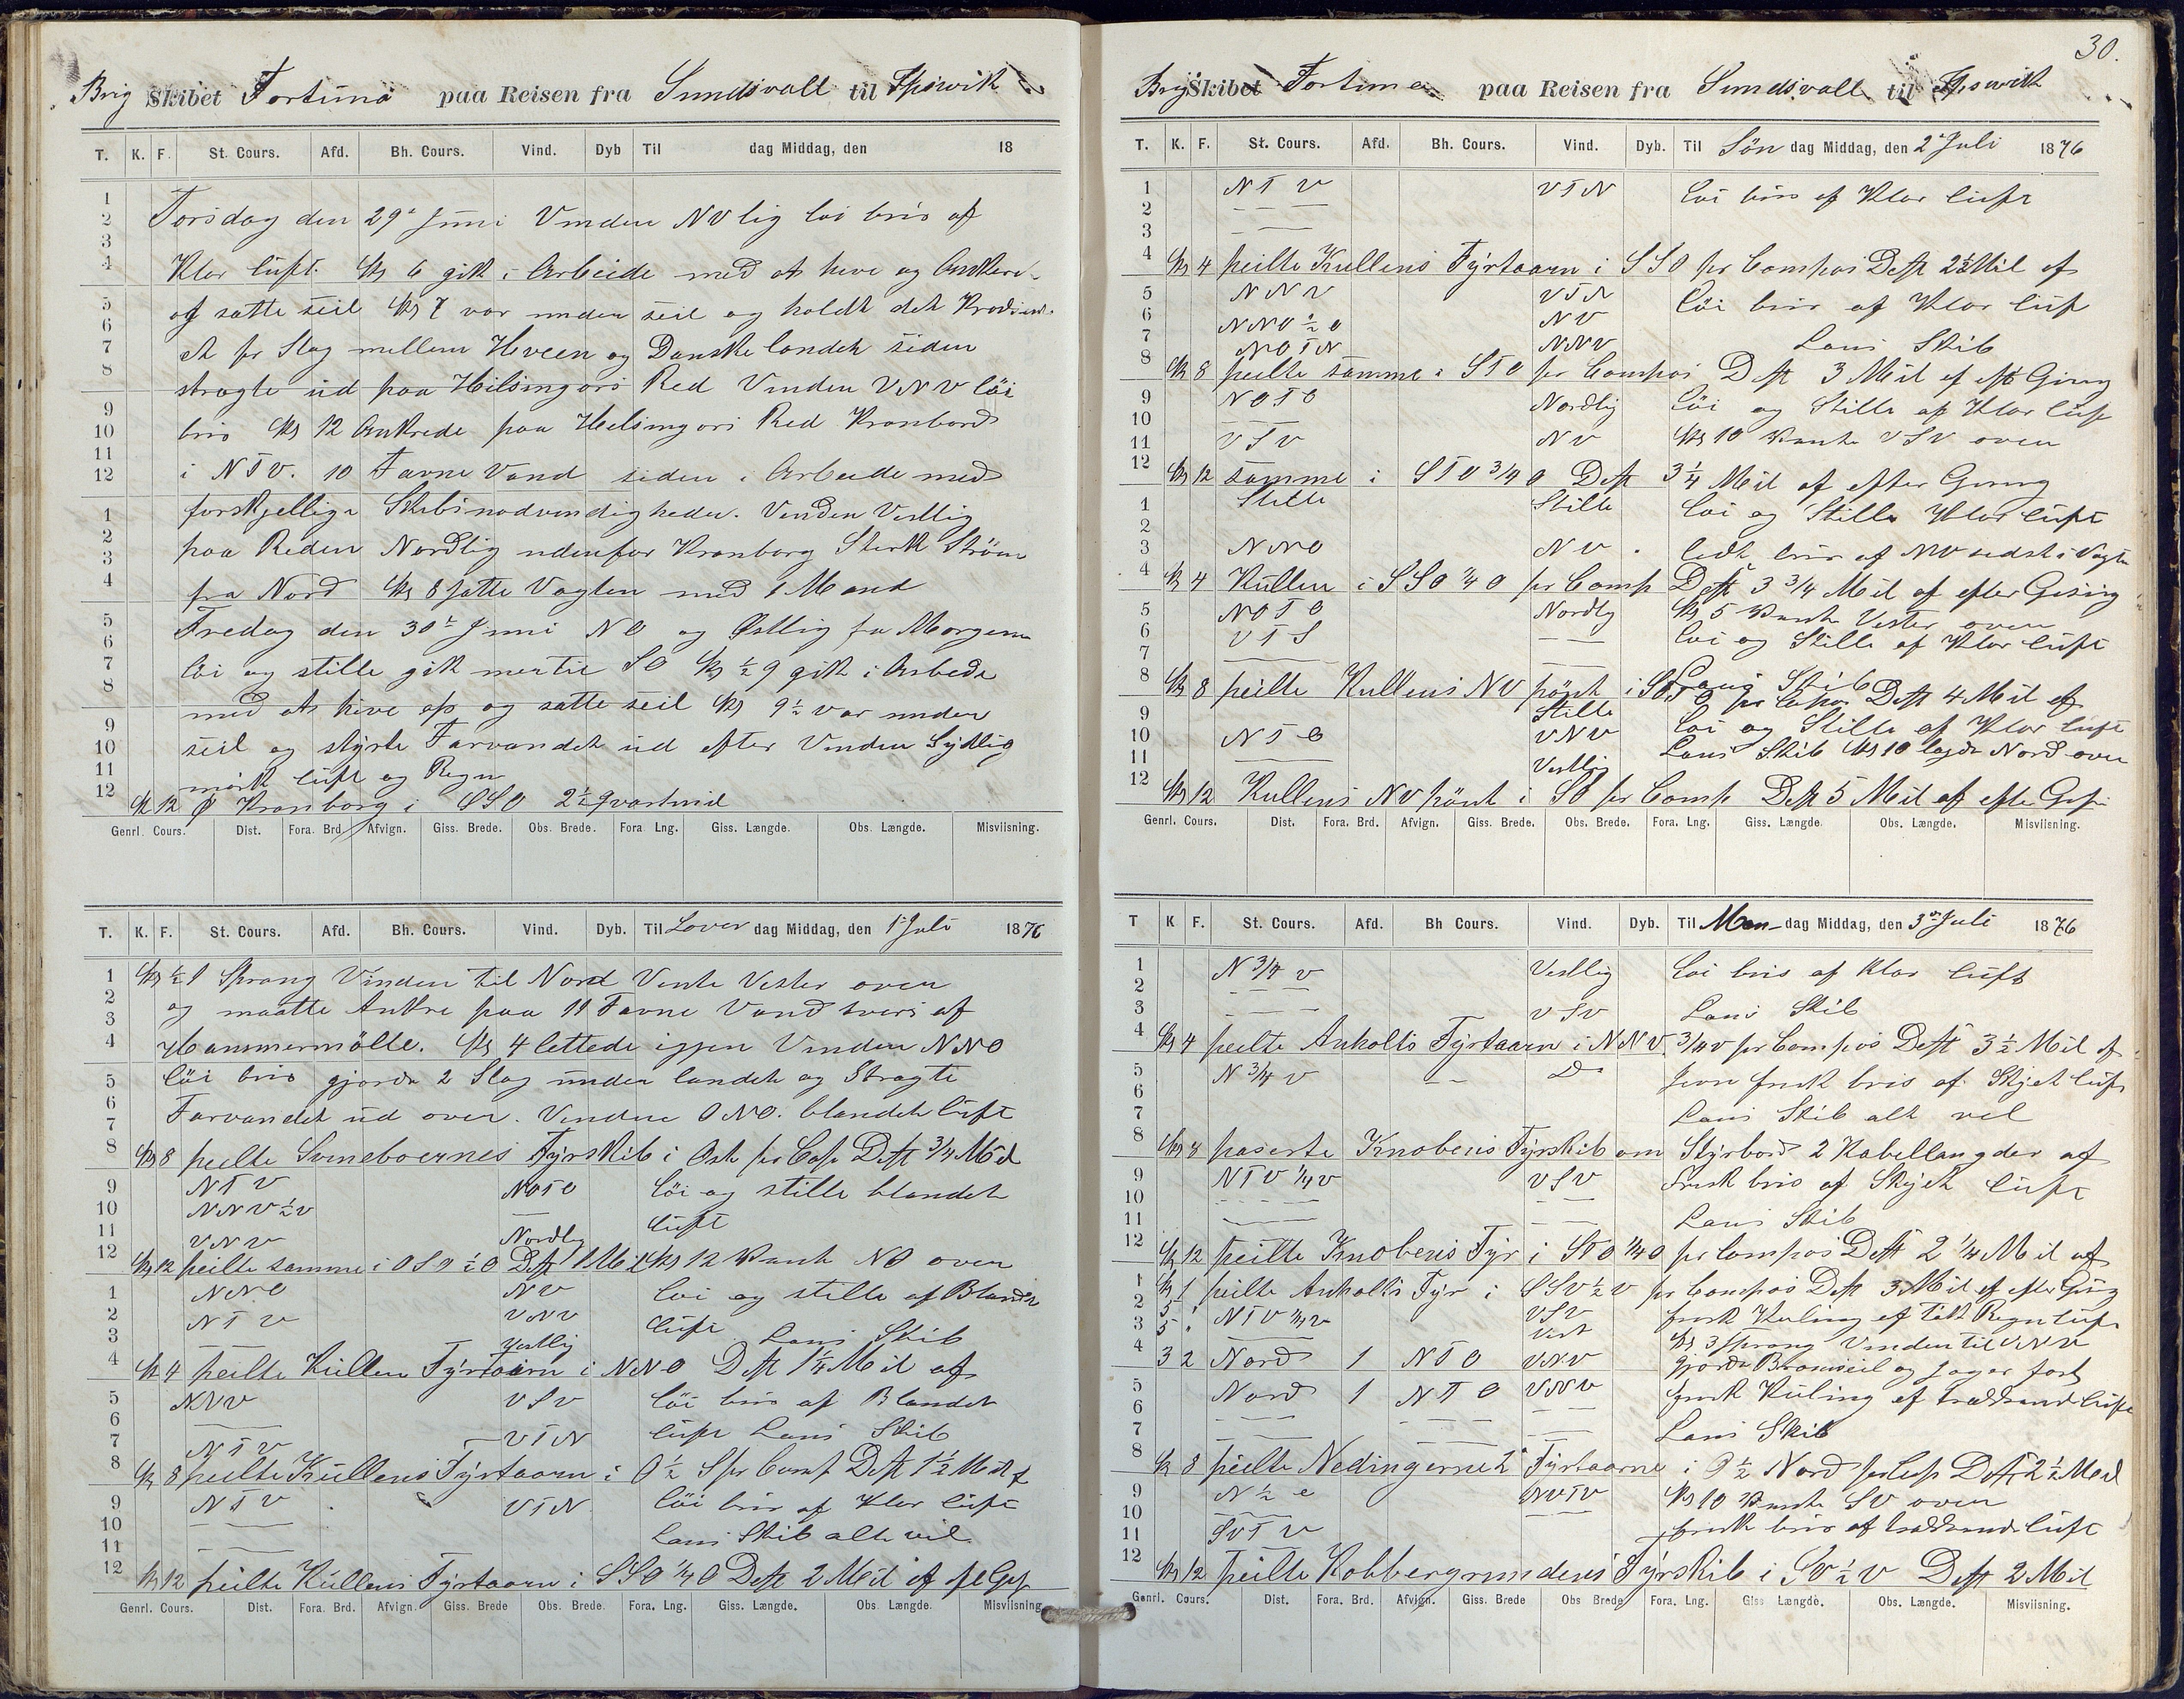 Brig Skibet Fortuna paa Reisen fra Sundsvall til Ipswich
T. K. F. St. Cours. Afd. Bh. Cours. Vind. Dyb Til dag Middag, den 18
1
2 Torsdag den 29de Juni Vinden NV lig löi bris af
3
4 Klar luft. Kl 6 gik i Arbeide med at hive og Ankere
5 og satte seil Kl 7 var under seil og holdt det
6
7 et pr Slag mellem Hveen og Danske landet siden
8
stragte ud paa Helsingörs Red Vinden VNV löi
9
10 bris Kl 12 Ankrede paa Helsingörs Red Kronborg
11
12 i NTV. 10 Favne Vand siden i Arbeide med
1 forskjellige Skibsnödvendigheder. Vinden Vestlig
2
3 paa Reden Nordlig udenfor Kronborg Sterk Ström
4 fra Nord Kl 8 satte Vagten med 1 Mand
5 Fredag den 30te Juni NO og Østlig fra Morgenen
6
7 löi og stille gik mer til SO Kl ½ 9 gik i Arbeide
8
med at hive op og satte seil Kl 9½ var under
9
10 seil og styrte Farvandet ud efter Vinden Sydlig
11 mörk luft og Regn
12 Kl 12 Ø Kronborg i OSO 2½ qvartmil
Genrl. Cours. Dist. Fora. Brd. Afvign. Giss. Brede. Obs. Brede. Fora. Lng. Giss. Længde. Obs. Længde. Misviisning.
T. K. F. St. Cours. Afd. Bh. Cours. Vind. Dyb. Til Löver dag Middag, den 1ste Juli 1876
1 Kl ½ 1 Sprang Vinden til Nord Vente Vester over
2
3 og maatte Ankre paa 11 Favne Vand tvers af
4 Hammermölle. Kl 4 lettede igjen Vinden NNO
5 löi bris gjorde 2 Slag under landet og Stragte
6
7 Farvandet ud over. Vinden ONO. blandet luft
8 Kl 8 peilte Svineboernes Fyrskib i Ost pr Cop Dest ¾ Mil
9 NTV NOTO löi og stille blandet
10 NNV½V luft
11 VNV Nordlig
12 Kl 12 peilte samme i OSO ½ O Dest 1 Mil Kl 12 Vente NO over
1 NNO NV löi og stille af Blandet
2 NTV VNV luft
3 Vestlig Lans Skib
4 Kl 4 peilte Kullen Fyrtaarn i NNO Dest 1¼ Mil af
5 NNV VSV löi bris af Blandet
6
7 NTV VTN luft Lans Skib
8 Kl 8 peilte Kullens Fyrtaarn i O½ S pr Comp Dest 1½ Mil af
9 NTV VTN löi bris af Klar luft
10
11 Lans Skib alt vel
12 Kl 12 peilte Kullens Fyrtaarn i SSO ¼ O Dest 2 Mil af
Genrl. Cours. Dist. Fora. Brd. Afvign. Giss. Brede Obs. Brede. Fora. Lng. Giss. Længde. Obs. Længde. Misviisning.
30.
Brig Skibet Fortuna paa Reisen fra Sundsvall til Ipswich
T. K. F. St. Cours. Afd. Bh. Cours. Vind. Dyb. Til Sön dag Middag, den 2de Juli 1876
1 NTV VTN löi bris af Klar luft
2
3
4 Kl 4 peilte Kullens Fyrtaarn i SSO pr Compas Dest 2½ Mil af
5 NNV VTN löi bris af Klar luft
6 NNO½O NV
7 NOTN NNV Lans Skib
8 Kl 8 peilte samme i STO pr Compas Dest 3 Mil af eft Gising
9 NOTO Nordlig löi og Stille af Klar luft
10
11 VSV NV Kl 10 Vente VSV over
12 Kl 12 samme i STO ¾ O Dest 3¼ Mil af efter Gising
1 Stille Stille löi og Stille Klar luft
2
3 NNO NV . lidt bris af NV sidst i Vagten
4 Kl 4 Kullen i SSO ¼ O pr Comp Dest 3¾ Mil af efter Gising
5 NOTO Nordlig Kl 5 Vente Vester over
6 VTS löi og Stille af Klar luft
7
8 Lans Skib
Kl 8 peilte Kullens NV pönt i pr Dest 4 Mil af
9 Stille löi og Stille af Klar luft
10 NTO VNV Lans Skib Kl 10 lagde Nord over
11 Vestlig
12 Kl 12 Kullens NV pönt i SO pr Comp Dest 5 Mil af efter
Genrl. Cours. Dist. Fora. Brd. Afvign. Giss. Brede. Obs. Brede. Fora. Lng. Giss. Længde. Obs. Længde. Misviisning.
T K F. St. Cours. Afd. Bh Cours. Vind. Dyb. Til Man dag Middag, den 3die Juli 1876
1 N ¾ V Vestlig löi bris af Klar luft
2
3 VSV Lans Skib
4 Kl 4 peilte Anholts Fyrtaarn i NNV ¾ V pr Compas Dest 3½ Mil af
5 N ¾ V Do jevn frisk bris af Skyet luft
6
7 Lans Skib alt vel
8 Kl 8 paserte Knobens Fyrskib om Styrbord 2 Kabellangder af
9 NTV ¼ V VSV Frisk bris af Skyet luft
10
11 Lans Skib
12 Kl 12 Peilte Knobens Fyr i STO ¼ O pr Compas Dest 2¼ Mil af
1 Kl 1 peilte Anholts Fyr i SSV ½ V pr Compas Dest 3 Mil af efter Gising
2 5 " NTV ¼ V VSV frisk Kuling af tåk Regn luft
3 5 " Vest Kl 3 Sprang Vinden til VNV
4 3 2 Nord 1 NTO VNV gjorde Bramseil og Jager fast
5 Nord 1 NTO VNV frisk Kuling af luft
6
7 Lans Skib
8 Kl 8 peilte Nedingerne 2 Fyrtaarne i O½ Nord pr Cop Dest 2½ Mil
9 N ½ O NVTV Kl 10 Vente SV over
10
11 SVTV frisk bris af luft
12 Kl 12 Peilte Kobbergrundens Fyrskib i SV ½ V Dest 2 Mil
Genrl. Cours. Dist. Fora. Brd. Afvign. Giss. Brede Obs Brede Fora. Lng. Giss Længde. Obs. Længde. Misviisning.